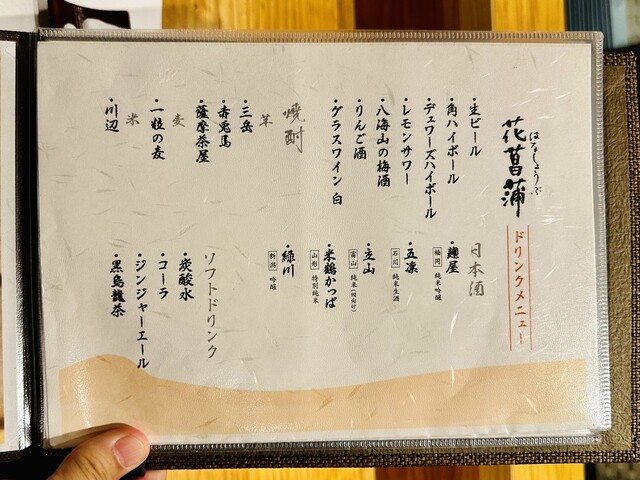 はなしょうぶ
花菖蒲
ドリンクメニュー
・生ビール
・角ハイボール
・デュワーズハイボール
・レモンサワー
・八海山の梅酒
・りんご酒
・グラスワイン 白
焼酎
芋
・三岳
・赤兎馬
・薩摩茶屋
麦
・一粒の麦
米
・川辺
日本酒
・麹屋
福岡 純米吟醸
・五凛
石川 純米生酒
・立山
富山 純米(燗向け)
・米鶴かっぱ
山形 特別純米
・緑川
新潟 吟醸
ソフトドリンク
・炭酸水
・コーラ
・ジンジャーエール
・黒烏龍茶